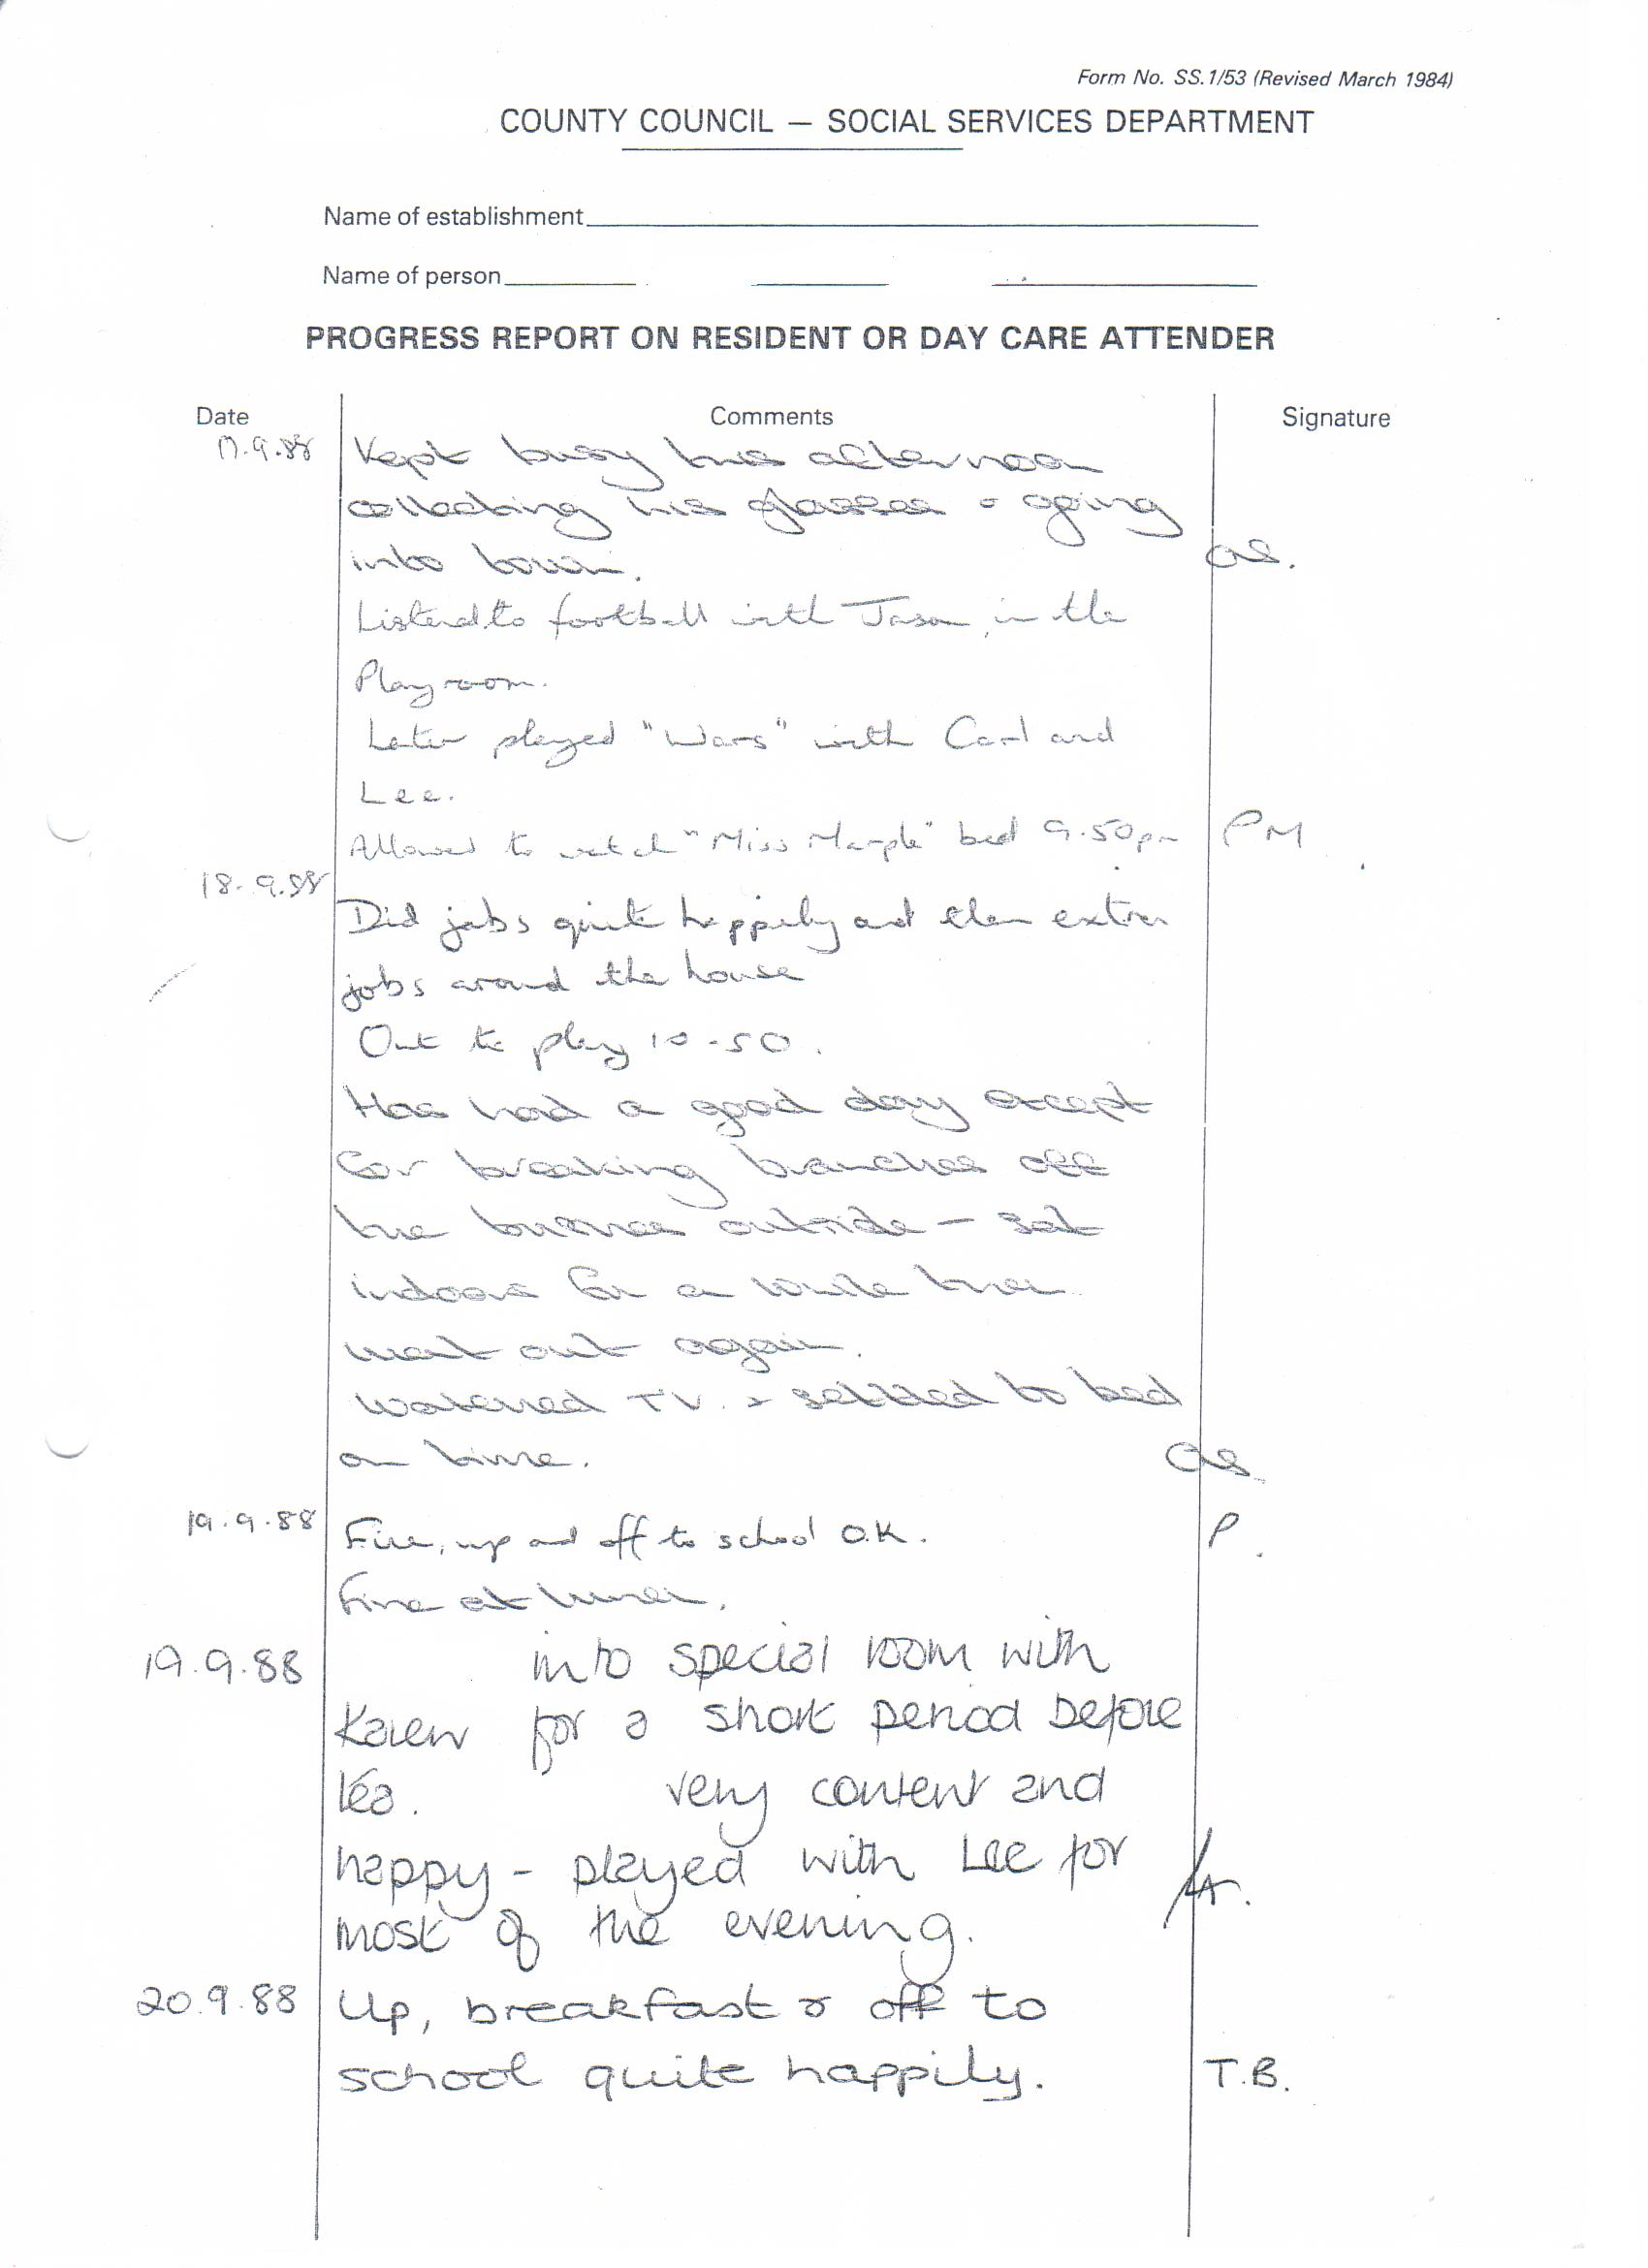 Form No. SS.1/53 (Revised March 1984)
COUNTY COUNCIL — SOCIAL SERVICES DEPARTMENT
Name of establishment
Name of person
PROGRESS REPORT ON RESIDENT OR DAY CARE ATTENDER
Date Comments Signature
17.9.88 Kept busy this afternoon
collecting his glasses & going
into town.
Listened to football with Jason, in the
Playroom.
Later played "Wars" with Carl and
Lee.
Allowed to watch "Miss Marple" bed 9.50pm PM
18.9.88
Did jobs quite happily and then extra
jobs around the house
Out to play 10-50.
Has had a good day except
for breaking branches off
the bushes outside — sat
indoors for a while then
went out again.
Watched TV. & settled to bed
on time.
19.9.88 Fine, up and off to school O.K. P.
Fine at lunch.
19.9.88 into special room with
Karen for a short period before
tea. very content and
happy - played with Lee for
most of the evening.
20.9.88 Up, breakfast & off to
school quite happily. T.B.